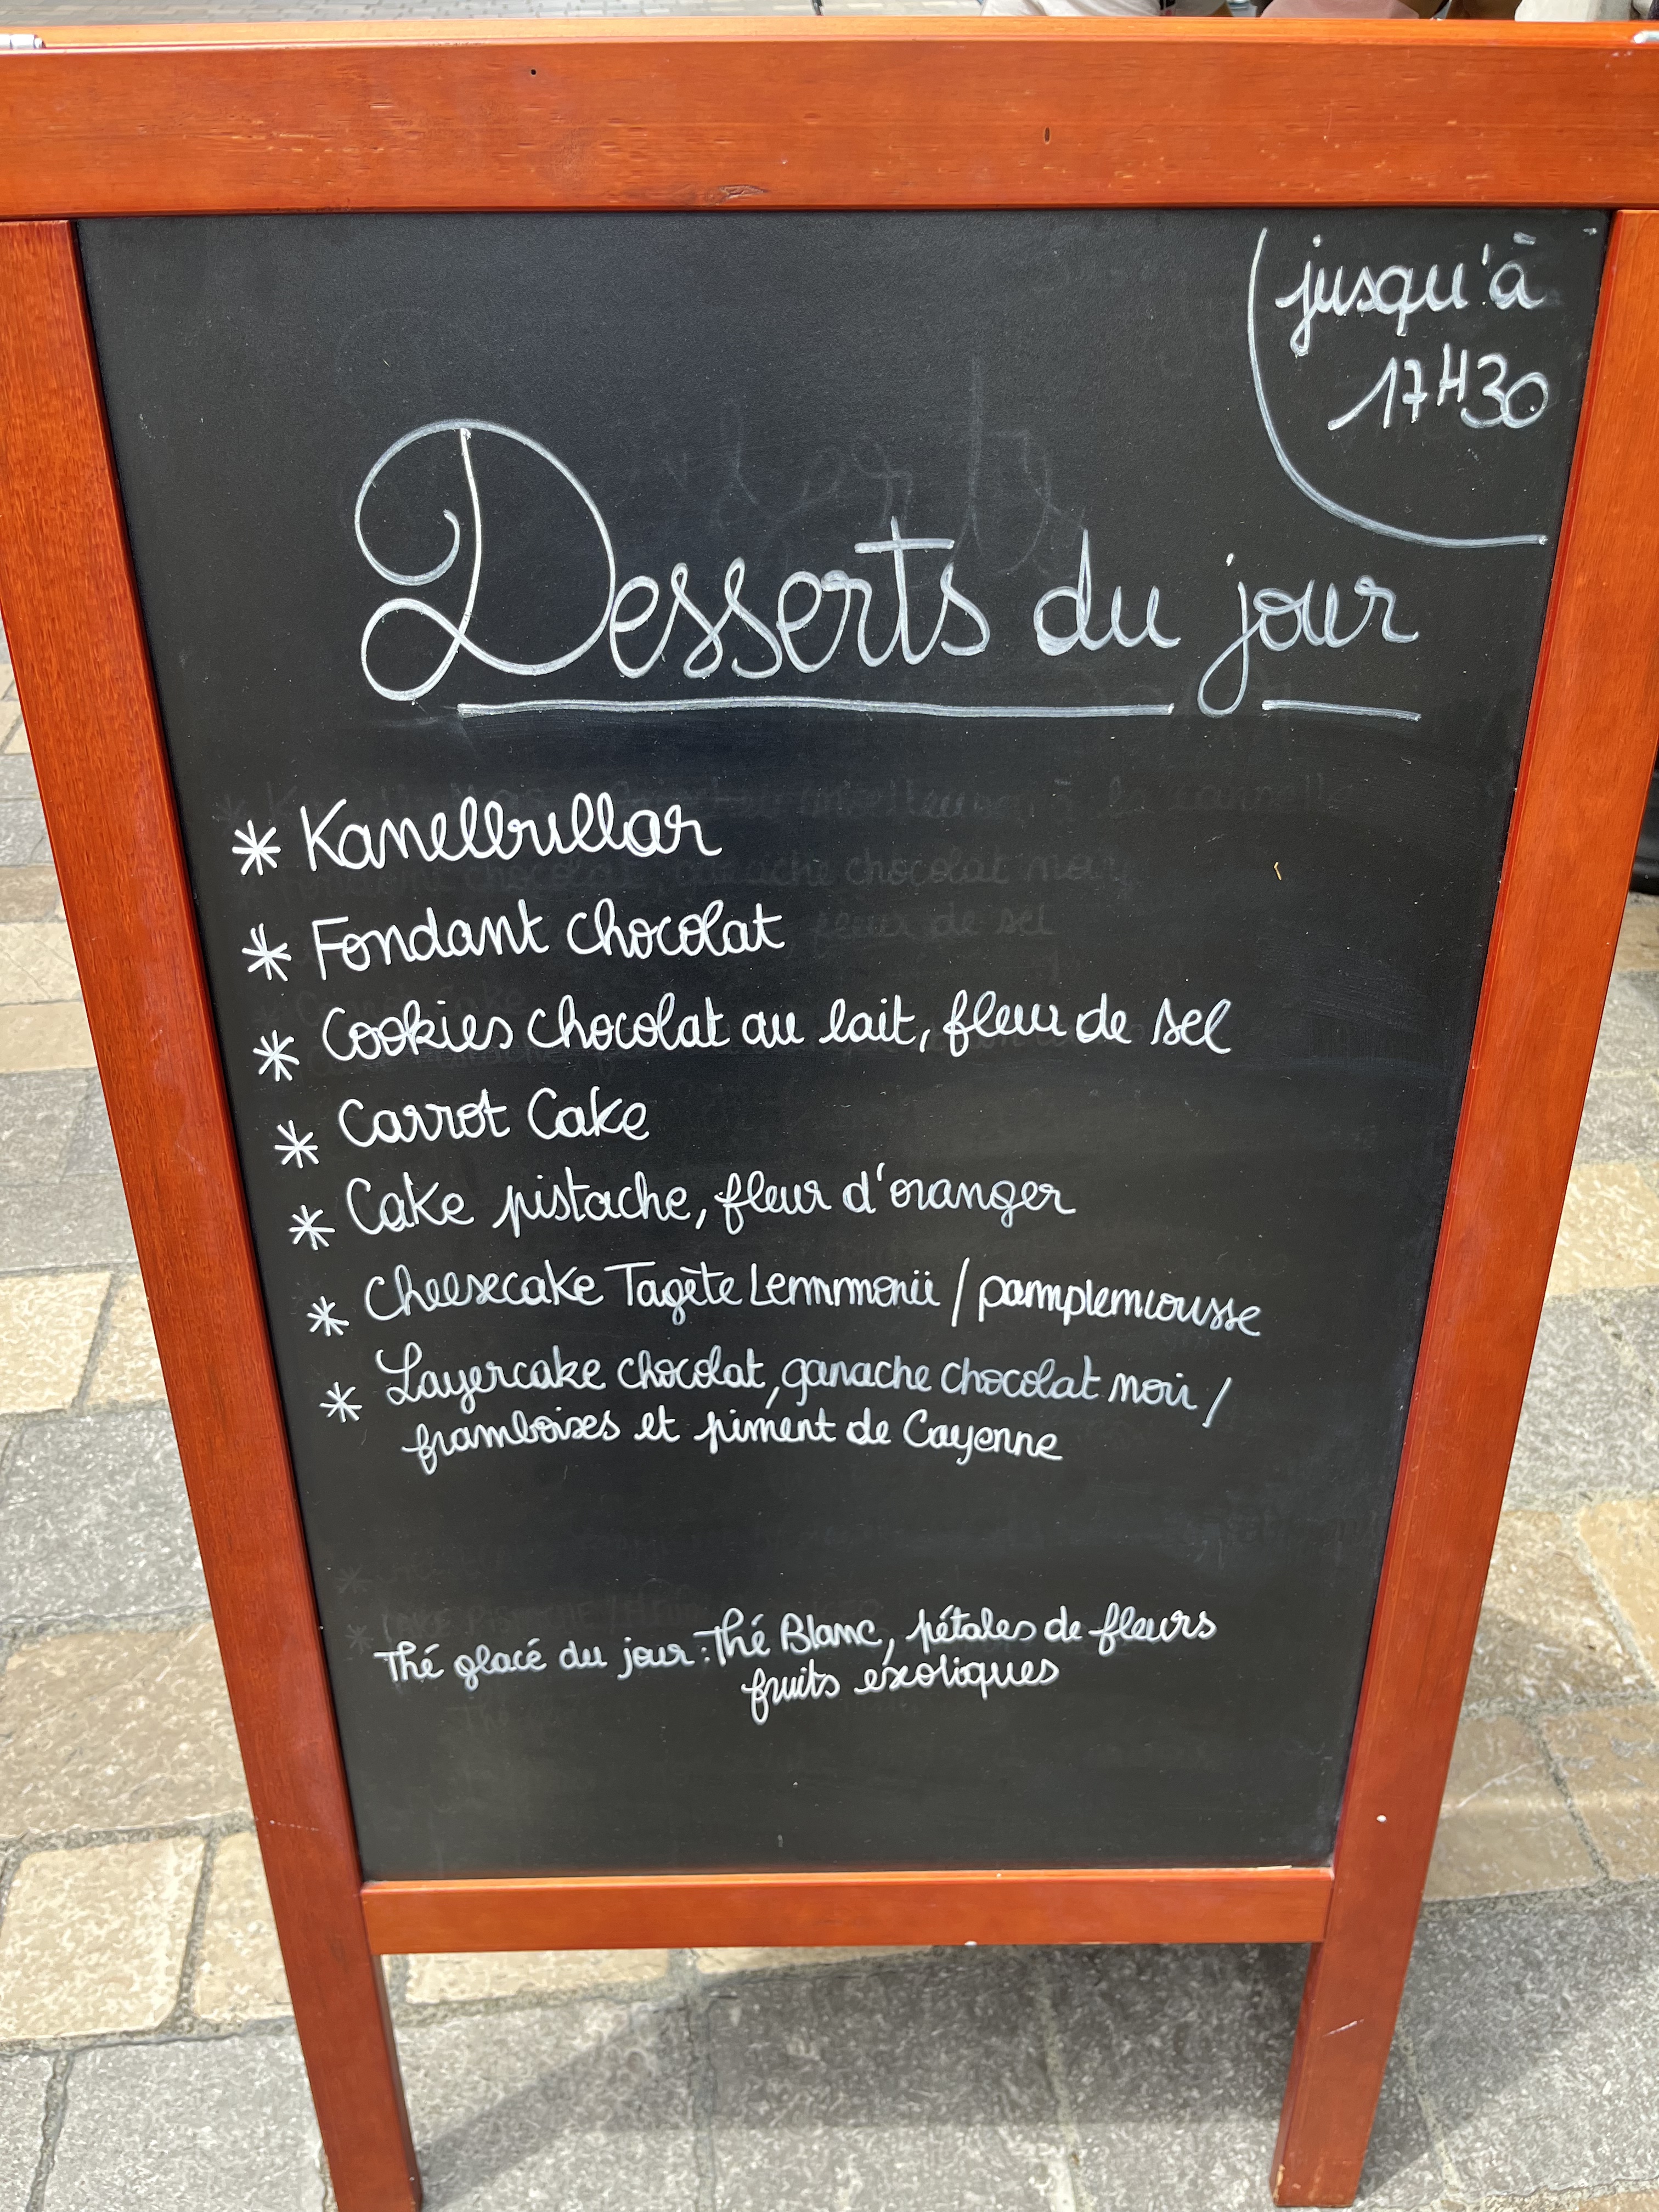 jusqu'à
17H30
Desserts du jour
* Kanelbullar
* Fondant chocolat
* Cookies chocolat au lait, fleur de sel
* Carrot Cake
* Cake pistache, fleur d'oranger
* Cheesecake Tagète Lemmonii / pamplemousse
* Layercake chocolat, ganache chocolat noir /
framboises et piment de Cayenne
Thé glacé du jour : Thé Blanc, pétales de fleurs
fruits exotiques